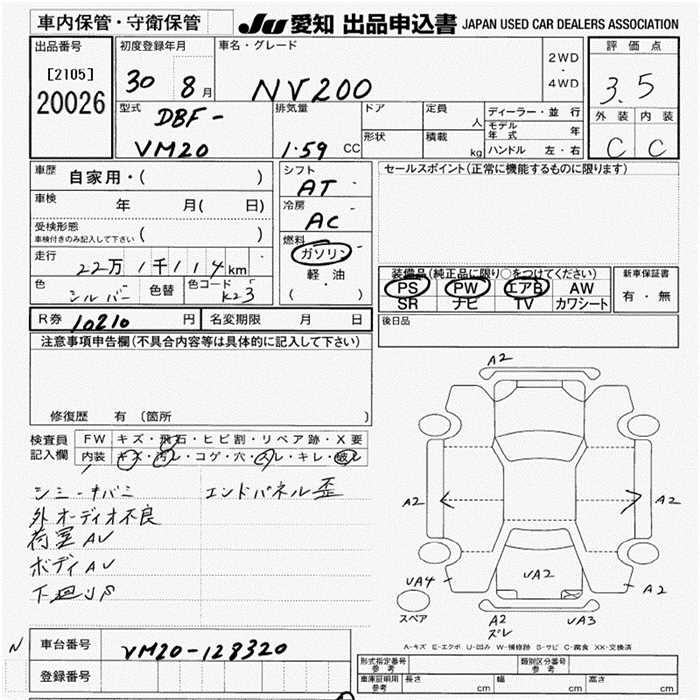 車内保管・守衛保管 JU 愛知 出品申込書 JAPAN USED CAR DEALERS ASSOCIATION
出品番号 初度登録年月 車名・グレード 2WD・4WD 評価点
[2105] 20026 30 8月 NV200 3.5
型式 DBF-VM20 排気量 1.59 CC ドア 定員 人 ディーラー・並行
形状 積載 kg モデル年式 年 外装 内装
ハンドル 左・右 C C
車歴 自家用・( ) シフト AT セールスポイント(正常に機能するものに限ります)
車検 年 月( 日) 冷房 AC
受検形態 車検付きのみ記入して下さい ( ) 燃料 ガソリン
走行 22万1千114km 軽油 装備品(純正品に限り○をつけてください) 新車保証書
色 シルバー 色替 色コード K23 ( ・ ) PS PW エアB AW 有・無
SR ナビ TV カワシート
R券 10210 円 名変期限 月 日 後日品
注意事項申告欄(不具合内容等は具体的に記入して下さい)
修復歴 有 (箇所 )
検査員記入欄 FW キズ・飛石・ヒビ割・リペア跡・X要
内装 キズ・汚レ・コゲ・穴・スレ・キレ・破レ
シミ・ナバミ エンドパネル歪
外オーディオ不良
荷室AU
ボディAU
下廻りS
A2
A2 A2
UA4 UA2 A2
スペア A2 ズレ UA3
A-キズ E-エクボ U-凹み W-補修跡 S-サビ C-腐食 XX-交換済
N 車台番号 VM20-128320 形式指定番号 参考 類別区分番号 参考
登録番号 車庫証明用 参考 長さ cm 幅 cm 高さ cm